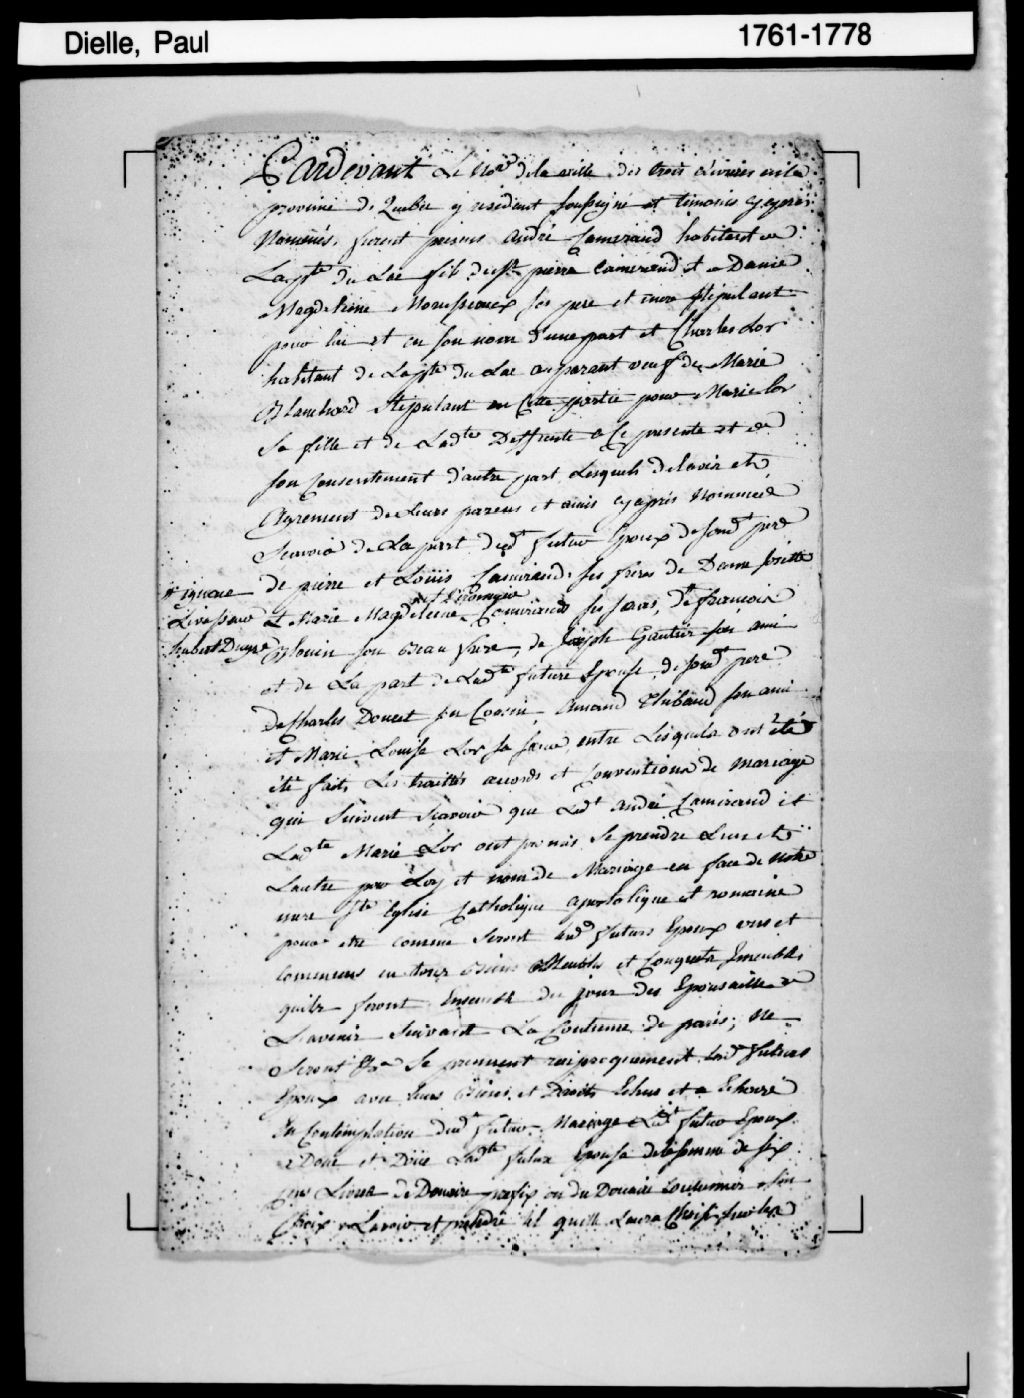 Dielle, Paul
1761-1778
Pardevant Le Nore de la ville des trois Rivieres en la
province de Quebec y residant soussigné et temoins cy apres
Nommés, furent presens André Camirand habitant de
La pte du Lac fils de Sr pierre Camirand et de Dame
Magdeleine Moussseaux ses pere et mere stipulant
pour lui et en son nom d'une part et Charles Lor
habitant de La pte du Lac auparant veuf de Marie
Blanchard stipulant en Cette partie pour Marie Lor
Sa fille et de Ladte Deffunte a Ce presente et de
son Consentement d'autre part Lesquels de Lavis et
Agrement de Leurs parens et amis cy apres Nommés
Scavoir de La part dudt futur Epoux de sondt pere
de pierre et Loüis Camirand ses freres de Dame Josette
et Marie Magdeleine et Veronique Camirand ses soeurs, de francois
Blouin son Beau frere, de Joseph Gautier son ami
# ignace
Livasseur
hubert Dugré
et de La part de Ladte future Epouse de sondt pere
de Charles Doucet son Cousin, Amand Thibaud son ami
et Marie Louise Lor sa soeur entre Lesquels ont été
été faits Les traittés accords et Conventions de mariage
qui Suivent Scavoir que Ledt André Camirand et
Ladte Marie Lor ont promis Se prendre L'un et
Lautre par Loy et nom de Mariage en face de notre
mere Ste Eglise Catholique apostolique et romaine
pour etre comme Seront lesd futurs Epoux uns et
Communs en tous Biens Meubles et Conquets Imeubles
quils feront Ensemble du jour des Epousailles a
Lavenir Suivant La Coutume de paris; Ne
Seront &a Se prennent reciproquement lesd futurs
Epoux avec Leurs Biens et Droits Echus et a Echeoir
En Contemplation dudt futur Mariage Ledt futur Epoux
a Doué et Doüe Ladte future Epouse de la somme de six
Cens Livres de Doüaire prefix ou du Douaire Coutumier a son
Choix a Lavoir et prendre si quelle Laura Choisi sur les